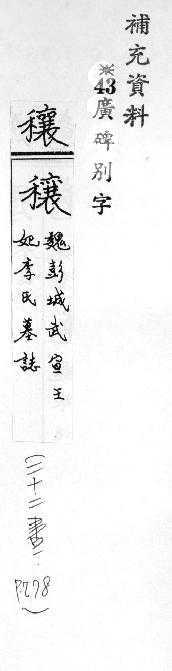 補充資料
※43廣碑別字
穰
穰
魏彭城武宣王
妃李氏墓誌
(二十二畫.
P778)